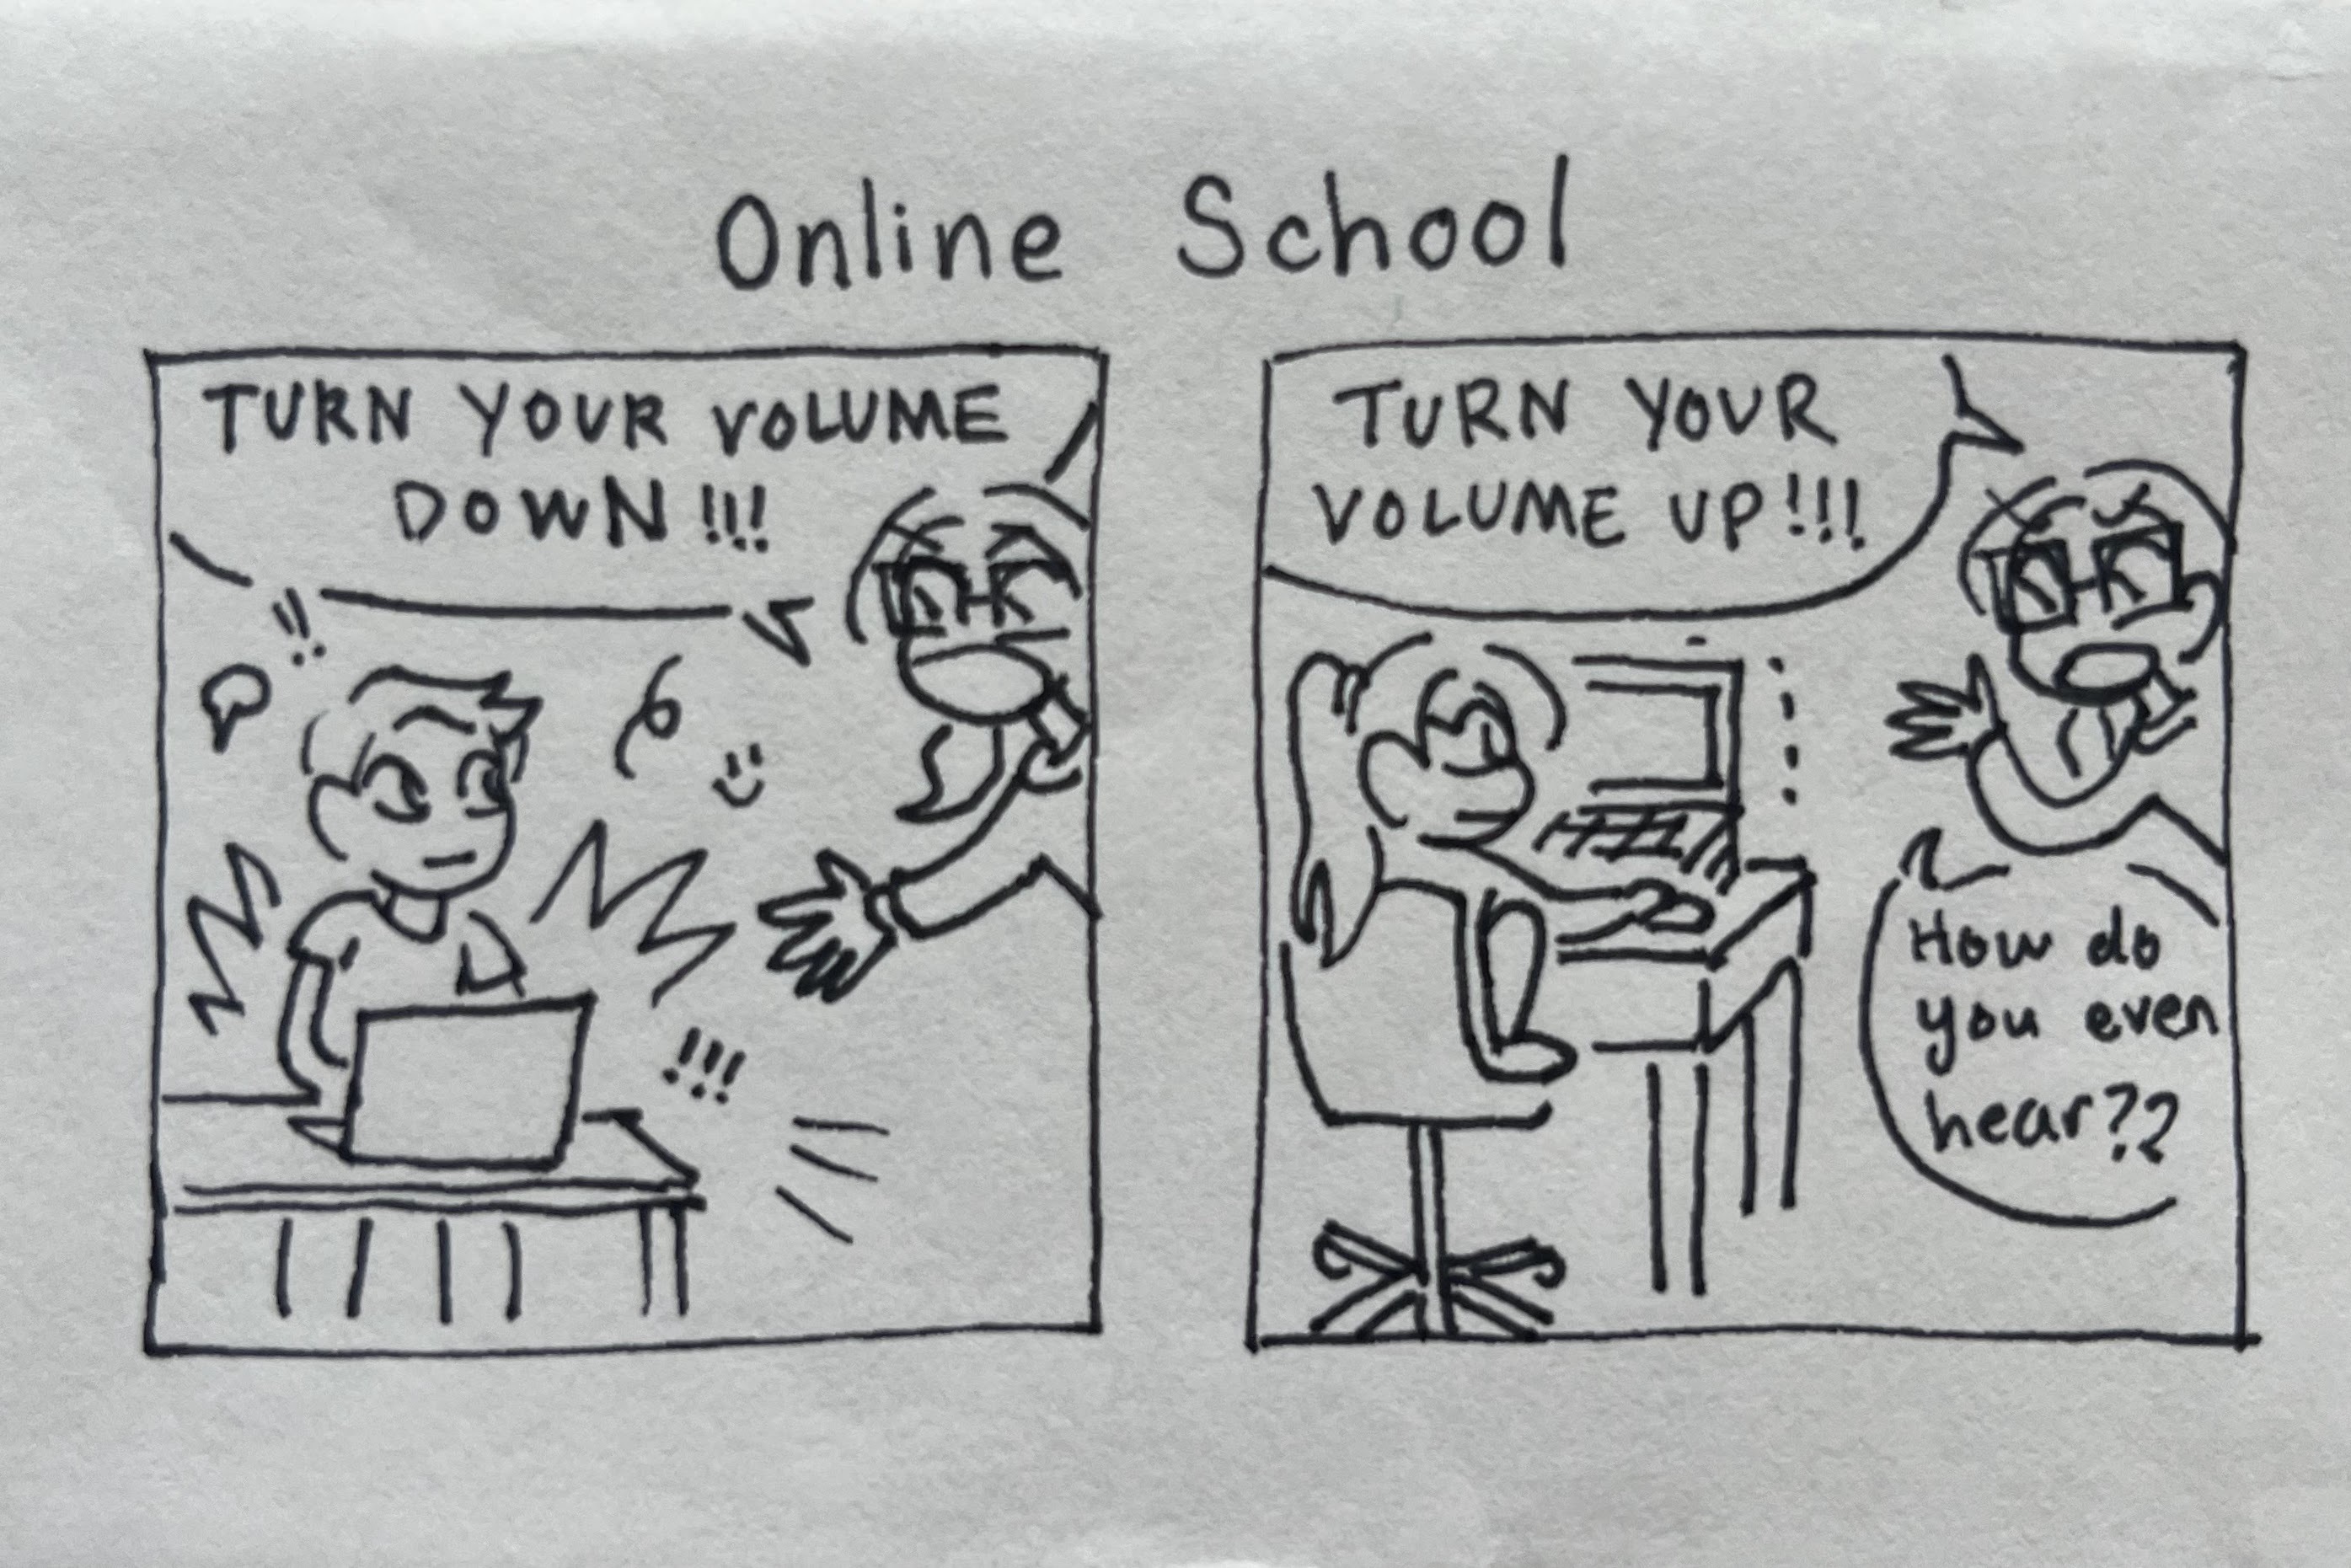 Online School
TURN YOUR VOLUME
DOWN!!!
!!
!!!
TURN YOUR
VOLUME UP!!!
How do
you even
hear??